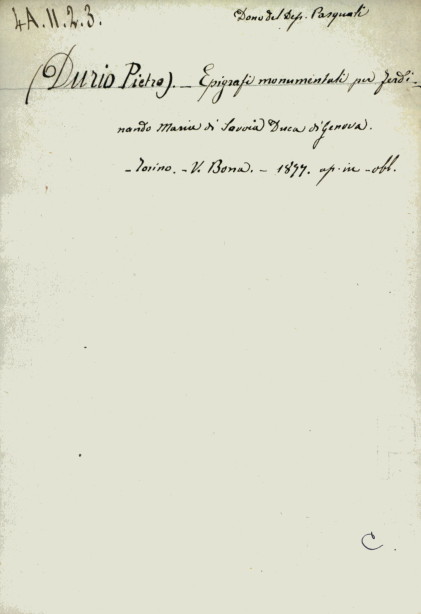 4A.11.2.3.
Dono del Dep. Pasquali
(Durio Pietro). — Epigrafi monumentali per Ferdi-
nando Maria di Savoia Duca di Genova.
- Torino. - V. Bona. - 1877. op. in - obl.
C